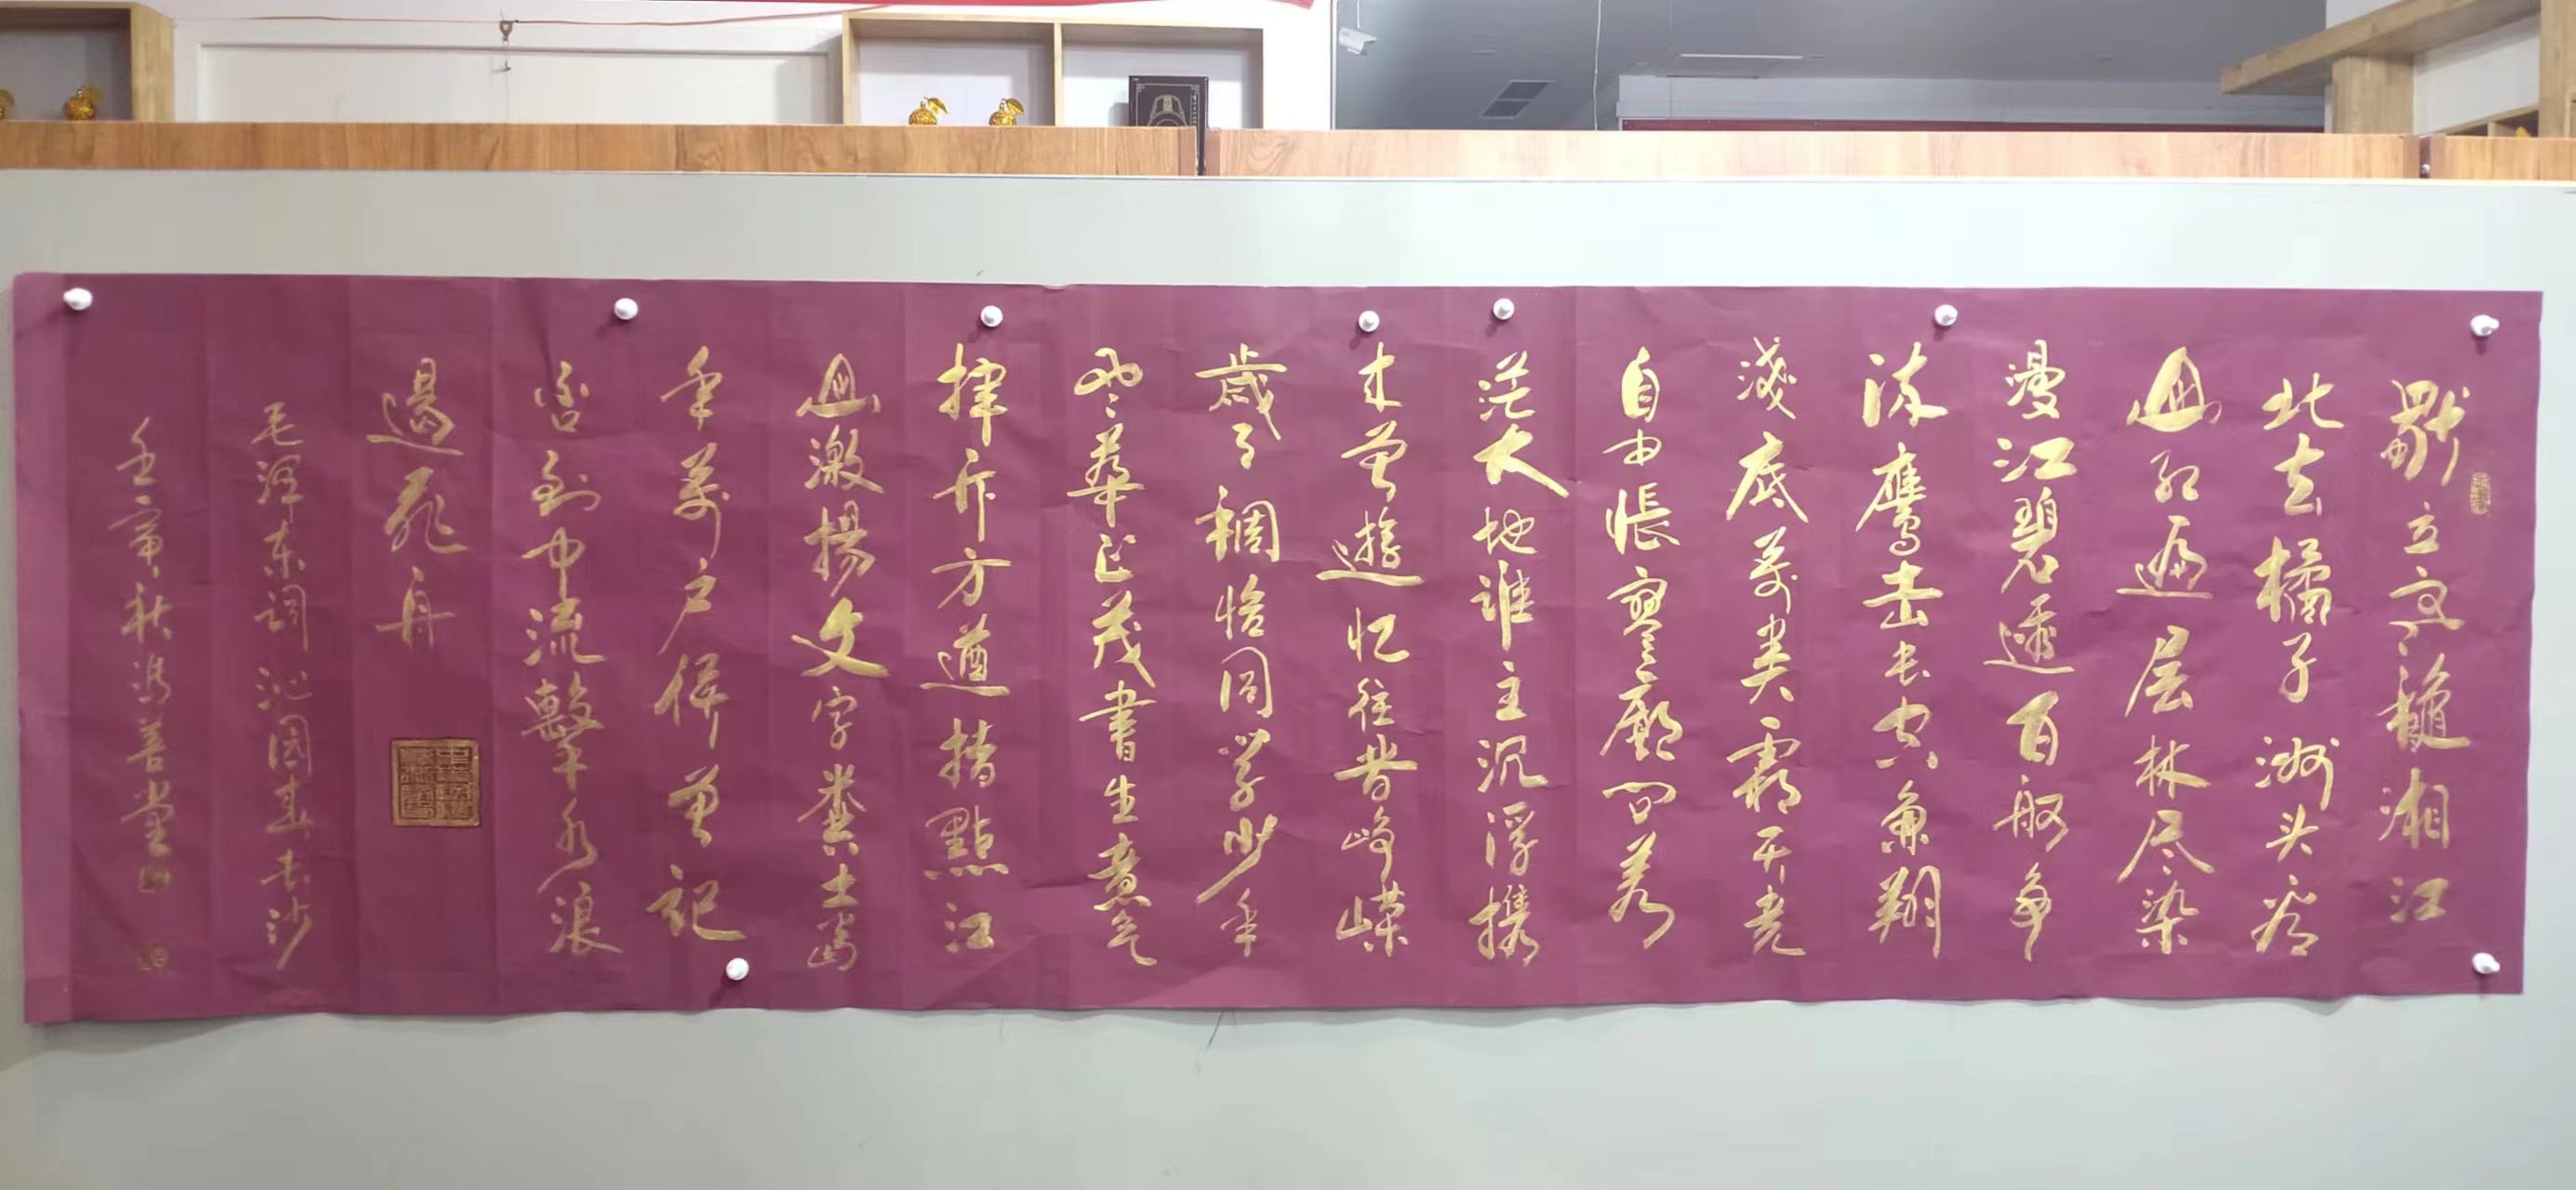 獨立寒秌湘江
北去橘子洲头看
山红遍层林尽染
漫江碧透百舸争
流鹰击长空鱼翔
淺底萬类霜天竞
自由悵寥廓问苍
茫大地谁主沉浮携
来曾遊忆往昔峥嵘
歲月稠恰同学少年
风華正茂書生意气
挥斥方遒指點江
山激揚文字粪土当
年萬户侯曾记
否到中流擊水浪
遏飛舟
毛泽东词沁园春长沙
壬寅秋冯善堂